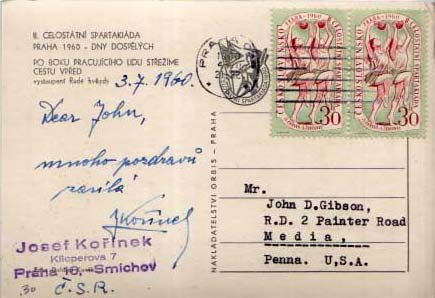 II. CELOSTÁTNÍ SPARTAKIÁDA
PRAHA 1960 - DNY DOSPĚLÝCH
PO BOKU PRACUJÍCÍHO LIDU STŘEŽÍME
CESTU VPŘED
vystoupení Rudé hvězdy
3.7.1960.
Dear John,
mnoho pozdravů
zasílá
JKořínek
Josef Kořínek
Klieperova 7
Praha 16, Smíchov
Č.S.R.
30
NAKLADATELSTVÍ ORBIS - PRAHA
PRAHA
ČESKOSLOVENSKO
PRAHA-1960
II.CELOSTÁTNÍ SPARTAKIÁDA
30
ČESKOSLOVENSKO
PRAHA-1960
II.CELOSTÁTNÍ SPARTAKIÁDA
30
Mr.
John D.Gibson,
R.D. 2 Painter Road
Media,
Penna. U,S.A.